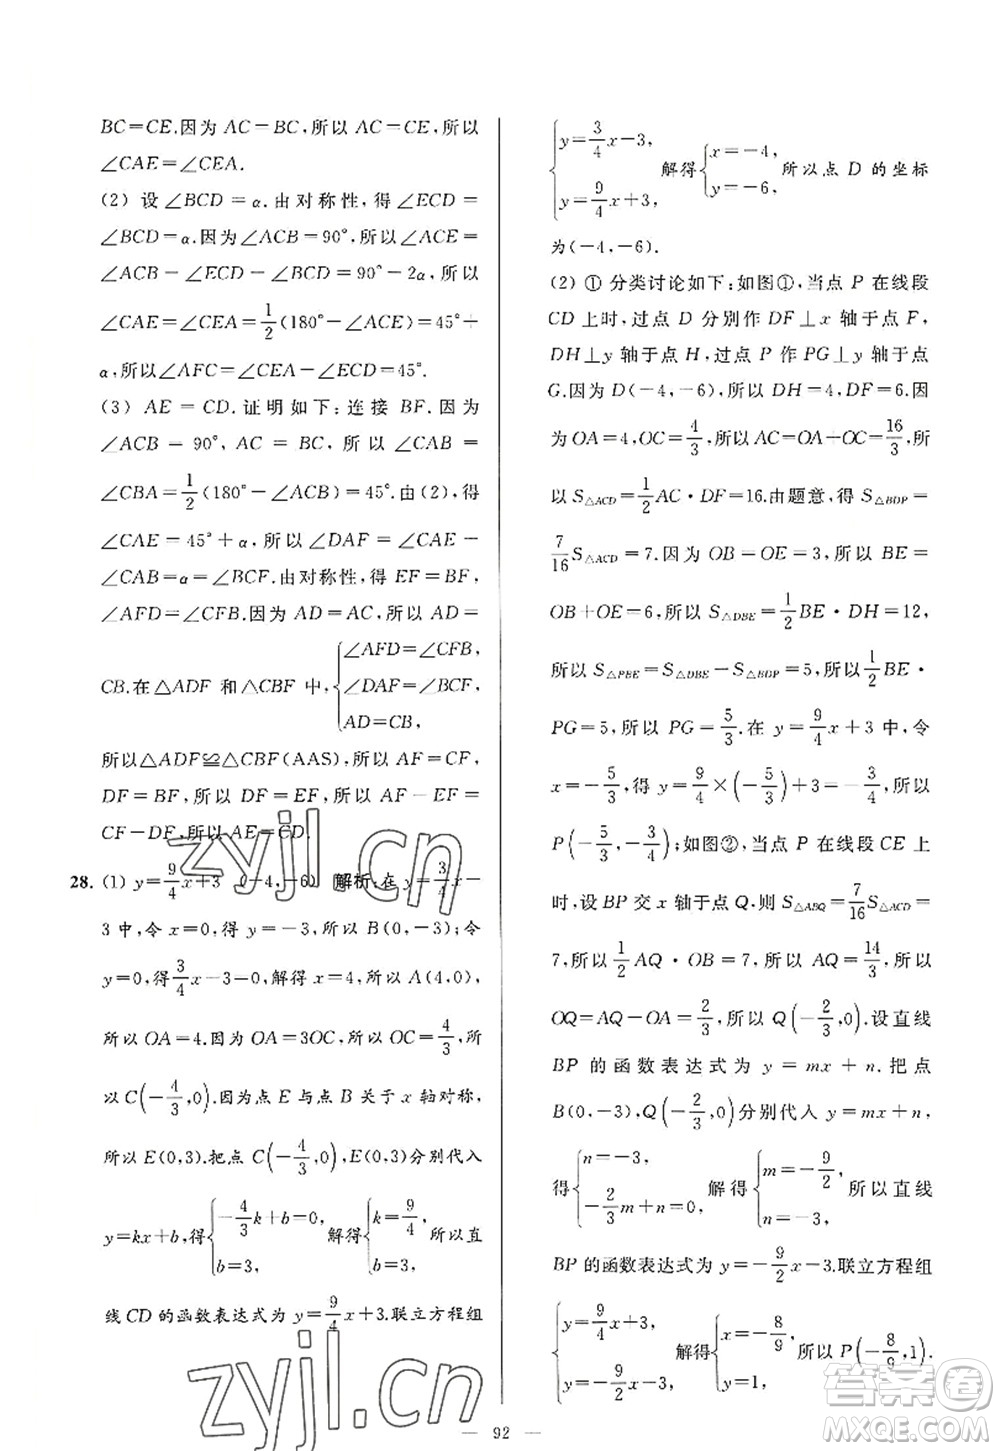 BC=CE.因为 AC=BC,所以 AC=CE,所以
∠CAE=∠CEA.
(2) 设 ∠BCD=α.由对称性,得 ∠ECD=
∠BCD=α.因为 ∠ACB=90°,所以 ∠ACE=
∠ACB-∠ECD-∠BCD=90°-2α,所以
∠CAE=∠CEA=1/2(180°-∠ACE)=45°+
α,所以 ∠AFC=∠CEA-∠ECD=45°.
(3) AE=CD.证明如下:连接 BF.因为
∠ACB-90°, AC = BC,所以 ∠CAB =
∠CBA=1/2(180°-∠ACB)=45°.由(2),得
∠CAE=45°+α,所以 ∠DAF=∠CAE-
∠CAB=α=∠BCF.由对称性,得 EF=BF,
∠AFD=∠CFB.因为 AD=AC,所以 AD=
CB.在△ADF 和△CBF 中,{∠AFD=∠CFB, ∠DAF=∠BCF, AD=CB,
所以△ADF≌△CBF(AAS),所以 AF=CF,
DF=BF,所以 DF=EF,所以 AF-EF=
CF-DF,所以 AE=CD.
28. (1) y=9/4x+3 (-4,-6) 解析:在 y=3/4x-
3 中,令 x=0,得 y=-3,所以 B(0,-3);令
y=0,得3/4x-3=0,解得 x=4,所以 A(4,0),
所以 OA=4.因为 OA=3OC,所以 OC=4/3,所
以 C(-4/3,0).因为点 E 与点 B 关于 x 轴对称,
所以 E(0,3).把点 C(-4/3,0),E(0,3)分别代入
y=kx+b,得{-4/3k+b=0, b=3, 解得{k=9/4, b=3, 所以直
线 CD 的函数表达式为 y=9/4x+3.联立方程组
{y=3/4x-3, y=9/4x+3, 解得{x=-4, y=-6, 所以点 D 的坐标
为(-4,-6).
(2) ① 分类讨论如下:如图①,当点 P 在线段
CD 上时,过点 D 分别作 DF⊥x 轴于点 F,
DH⊥y 轴于点 H,过点 P 作 PG⊥y 轴于点
G.因为 D(-4,-6),所以 DH=4,DF=6.因
为 OA=4,OC=4/3,所以 AC=OA+OC=16/3,所
以 S△ACD=1/2AC·DF=16.由题意,得 S△BDP=
7/16S△ACD=7.因为 OB=OE=3,所以 BE=
OB+OE=6,所以 S△DBE=1/2BE·DH=12,
所以 S△PBE=S△DBE-S△BDP=5,所以1/2BE·
PG=5,所以 PG=5/3.在 y=9/4x+3 中,令
x=-5/3,得 y=9/4×(-5/3)+3=-3/4,所以
P(-5/3,-3/4);如图②,当点 P 在线段 CE 上
时,设 BP 交 x 轴于点 Q,则 S△ABQ=7/16S△ACD=
7,所以1/2AQ·OB=7,所以 AQ=14/3,所以
OQ=AQ-OA=2/3,所以 Q(-2/3,0).设直线
BP 的函数表达式为 y=mx+n.把点
B(0,-3),Q(-2/3,0)分别代入 y=mx+n,
得{n=-3, -2/3m+n=0, 解得{m=-9/2, n=-3, 所以直线
BP 的函数表达式为 y=-9/2x-3.联立方程组
{y=9/4x+3, y=-9/2x-3, 解得{x=-8/9, y=1, 所以 P(-8/9,1).
— 92 —
zyjl.cn
zyjl.cn
答案圈
MXQE.COM